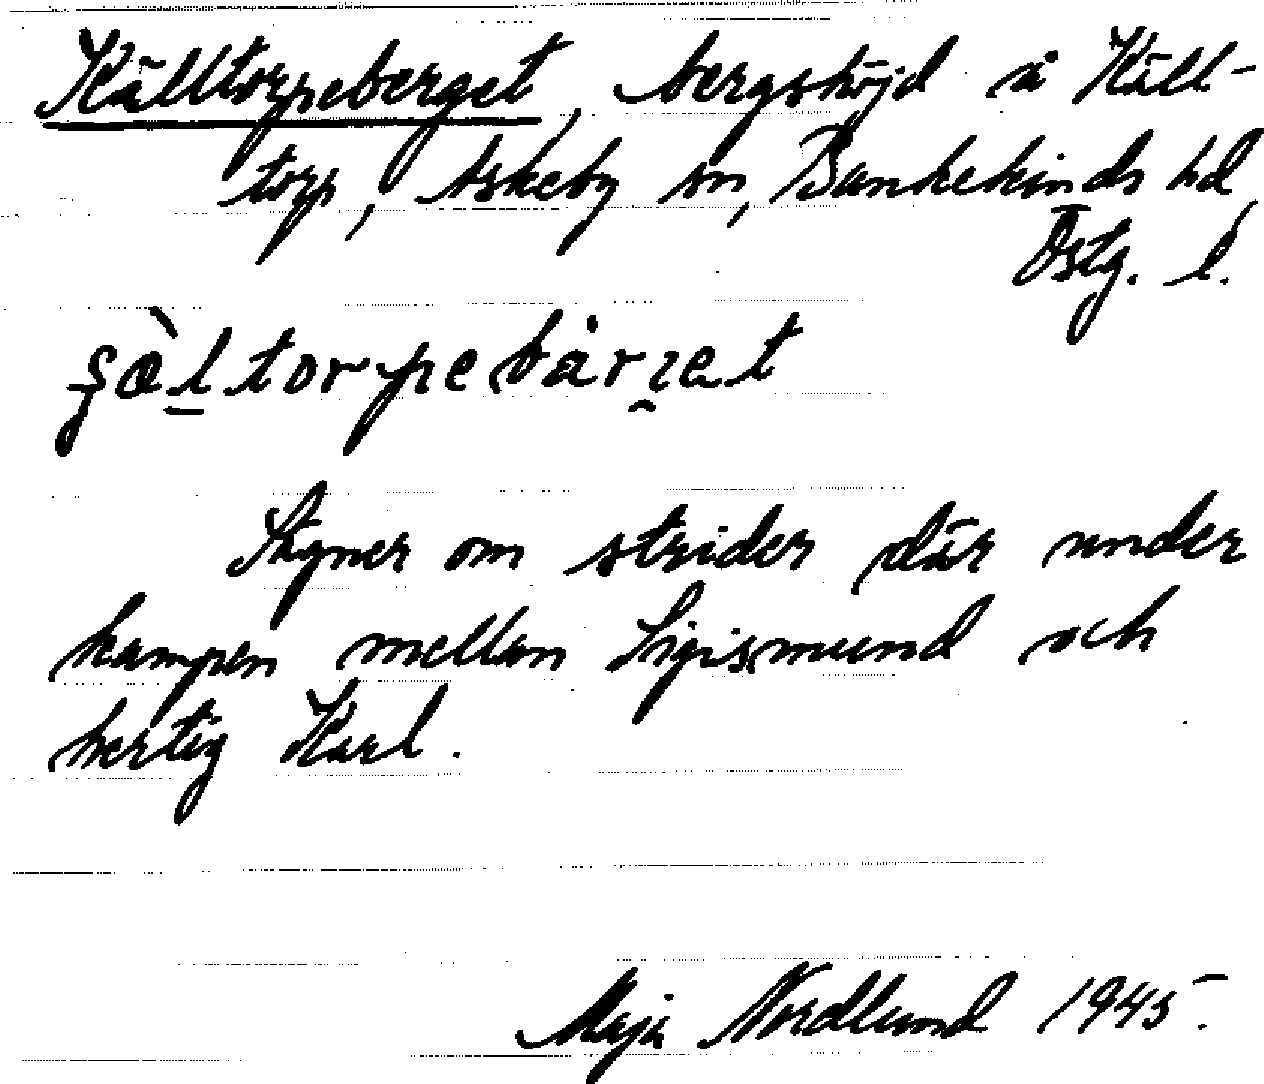 Källtorpeberget, bergshöjd å Käll-
torp, Askeby sn, Bankekinds hd,
Östg. l.
Sägner om strider där under
kampen mellan Sigismund och
hertig Karl.
Maja Nordlund 1945.